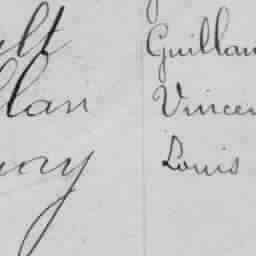 ult Guillau
llan Vincen
uory Louis